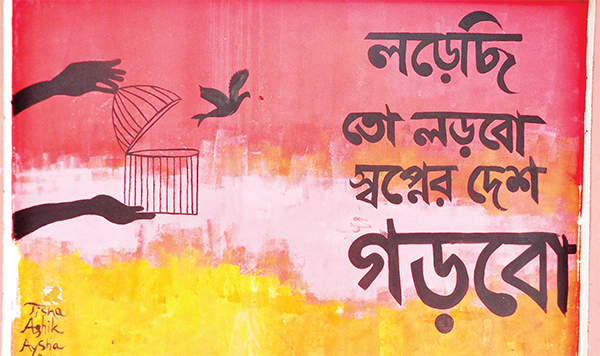 লড়েছি
তো লড়বো
স্বপ্নের দেশ
গড়বো
Tisha
Ashik
Aysha